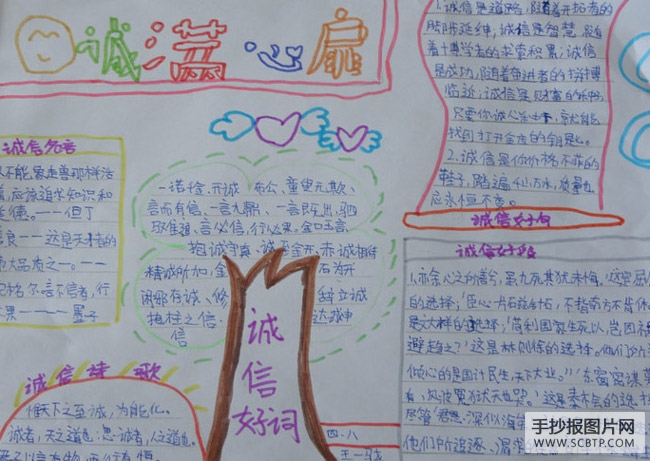 诚满心扉
1.诚信是道路,随着开拓者的
脚步延伸;诚信是智慧,随
着博学者的求索积累;诚信
是成功,随着奋进者的拼搏
临近;诚信是财富的种子,
只要你诚心种下,就能
找到打开金库的钥匙。
2.诚信是你价格不菲的
鞋子,踏遍千山万水,质量也
应永恒不变。
诚信好句
诚信名言
人不能象走兽那样活
着,应该追求知识和
美德。——但丁
——这是天才的
大品质之一。——
言不信者,行
不果————墨子
一诺千金、开诚布公、童叟无欺、
言而有信、一言九鼎、一言既出,驷
马难追、言必信,行必果、金口玉言
抱诚守真、诚至金开、赤诚相待
精诚所加,金石为开
闲邪存诚、修辞立诚
抱柱之信、
诚信好词
诚信诗歌
惟天下之至诚,为能化。
诚者,天之道也;思诚者,人之道也。
诚信好段
1.亦余心之所善兮,虽九死其犹未悔。这是屈
的选择;臣心一片磁针石,不指南方不肯休
是文天祥的选择;“苟利国家生死以,岂因祸
避趋之?”这是林则徐的选择。他们
倾心的是国计民生,天下大业。“东窗密谋
四.八
手抄报图片网
WWW.SCBTP.COM